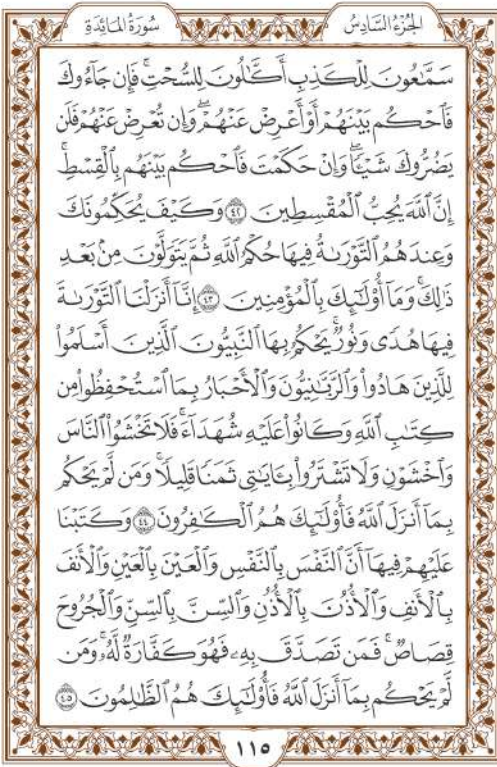 الجُزْءُ السَّادِسُ
سُورَةُ المَائِدَةِ
سَمَّٰعُونَ لِلۡكَذِبِ أَكَّٰلُونَ لِلسُّحۡتِۚ فَإِن جَآءُوكَ
فَٱحۡكُم بَيۡنَهُمۡ أَوۡ أَعۡرِضۡ عَنۡهُمۡۖ وَإِن تُعۡرِضۡ عَنۡهُمۡ فَلَن
يَضُرُّوكَ شَيۡـٔٗاۖ وَإِنۡ حَكَمۡتَ فَٱحۡكُم بَيۡنَهُم بِٱلۡقِسۡطِۚ
إِنَّ ٱللَّهَ يُحِبُّ ٱلۡمُقۡسِطِينَ ٤٢ وَكَيۡفَ يُحَكِّمُونَكَ
وَعِندَهُمُ ٱلتَّوۡرَىٰةُ فِيهَا حُكۡمُ ٱللَّهِ ثُمَّ يَتَوَلَّوۡنَ مِنۢ بَعۡدِ
ذَٰلِكَۚ وَمَآ أُوْلَٰٓئِكَ بِٱلۡمُؤۡمِنِينَ ٤٣ إِنَّآ أَنزَلۡنَا ٱلتَّوۡرَىٰةَ
فِيهَا هُدٗى وَنُورٞۚ يَحۡكُمُ بِهَا ٱلنَّبِيُّونَ ٱلَّذِينَ أَسۡلَمُواْ
لِلَّذِينَ هَادُواْ وَٱلرَّبَّٰنِيُّونَ وَٱلۡأَحۡبَارُ بِمَا ٱسۡتُحۡفِظُواْ مِن
كِتَٰبِ ٱللَّهِ وَكَانُواْ عَلَيۡهِ شُهَدَآءَۚ فَلَا تَخۡشَوُاْ ٱلنَّاسَ
وَٱخۡشَوۡنِ وَلَا تَشۡتَرُواْ بِـَٔايَٰتِي ثَمَنٗا قَلِيلٗاۚ وَمَن لَّمۡ يَحۡكُم
بِمَآ أَنزَلَ ٱللَّهُ فَأُوْلَٰٓئِكَ هُمُ ٱلۡكَٰفِرُونَ ٤٤ وَكَتَبۡنَا
عَلَيۡهِمۡ فِيهَآ أَنَّ ٱلنَّفۡسَ بِٱلنَّفۡسِ وَٱلۡعَيۡنَ بِٱلۡعَيۡنِ وَٱلۡأَنفَ
بِٱلۡأَنفِ وَٱلۡأُذُنَ بِٱلۡأُذُنِ وَٱلسِّنَّ بِٱلسِّنِّ وَٱلۡجُرُوحَ
قِصَاصٞۚ فَمَن تَصَدَّقَ بِهِۦ فَهُوَ كَفَّارَةٞ لَّهُۥۚ وَمَن
لَّمۡ يَحۡكُم بِمَآ أَنزَلَ ٱللَّهُ فَأُوْلَٰٓئِكَ هُمُ ٱلظَّٰلِمُونَ ٤٥
١١٥